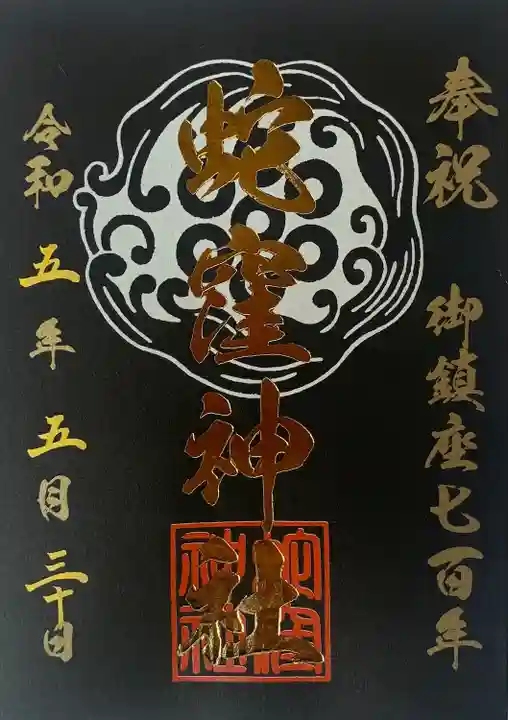 奉祝 御鎮座七百年
蛇窪神社
蛇窪神社
令和五年五月三十日